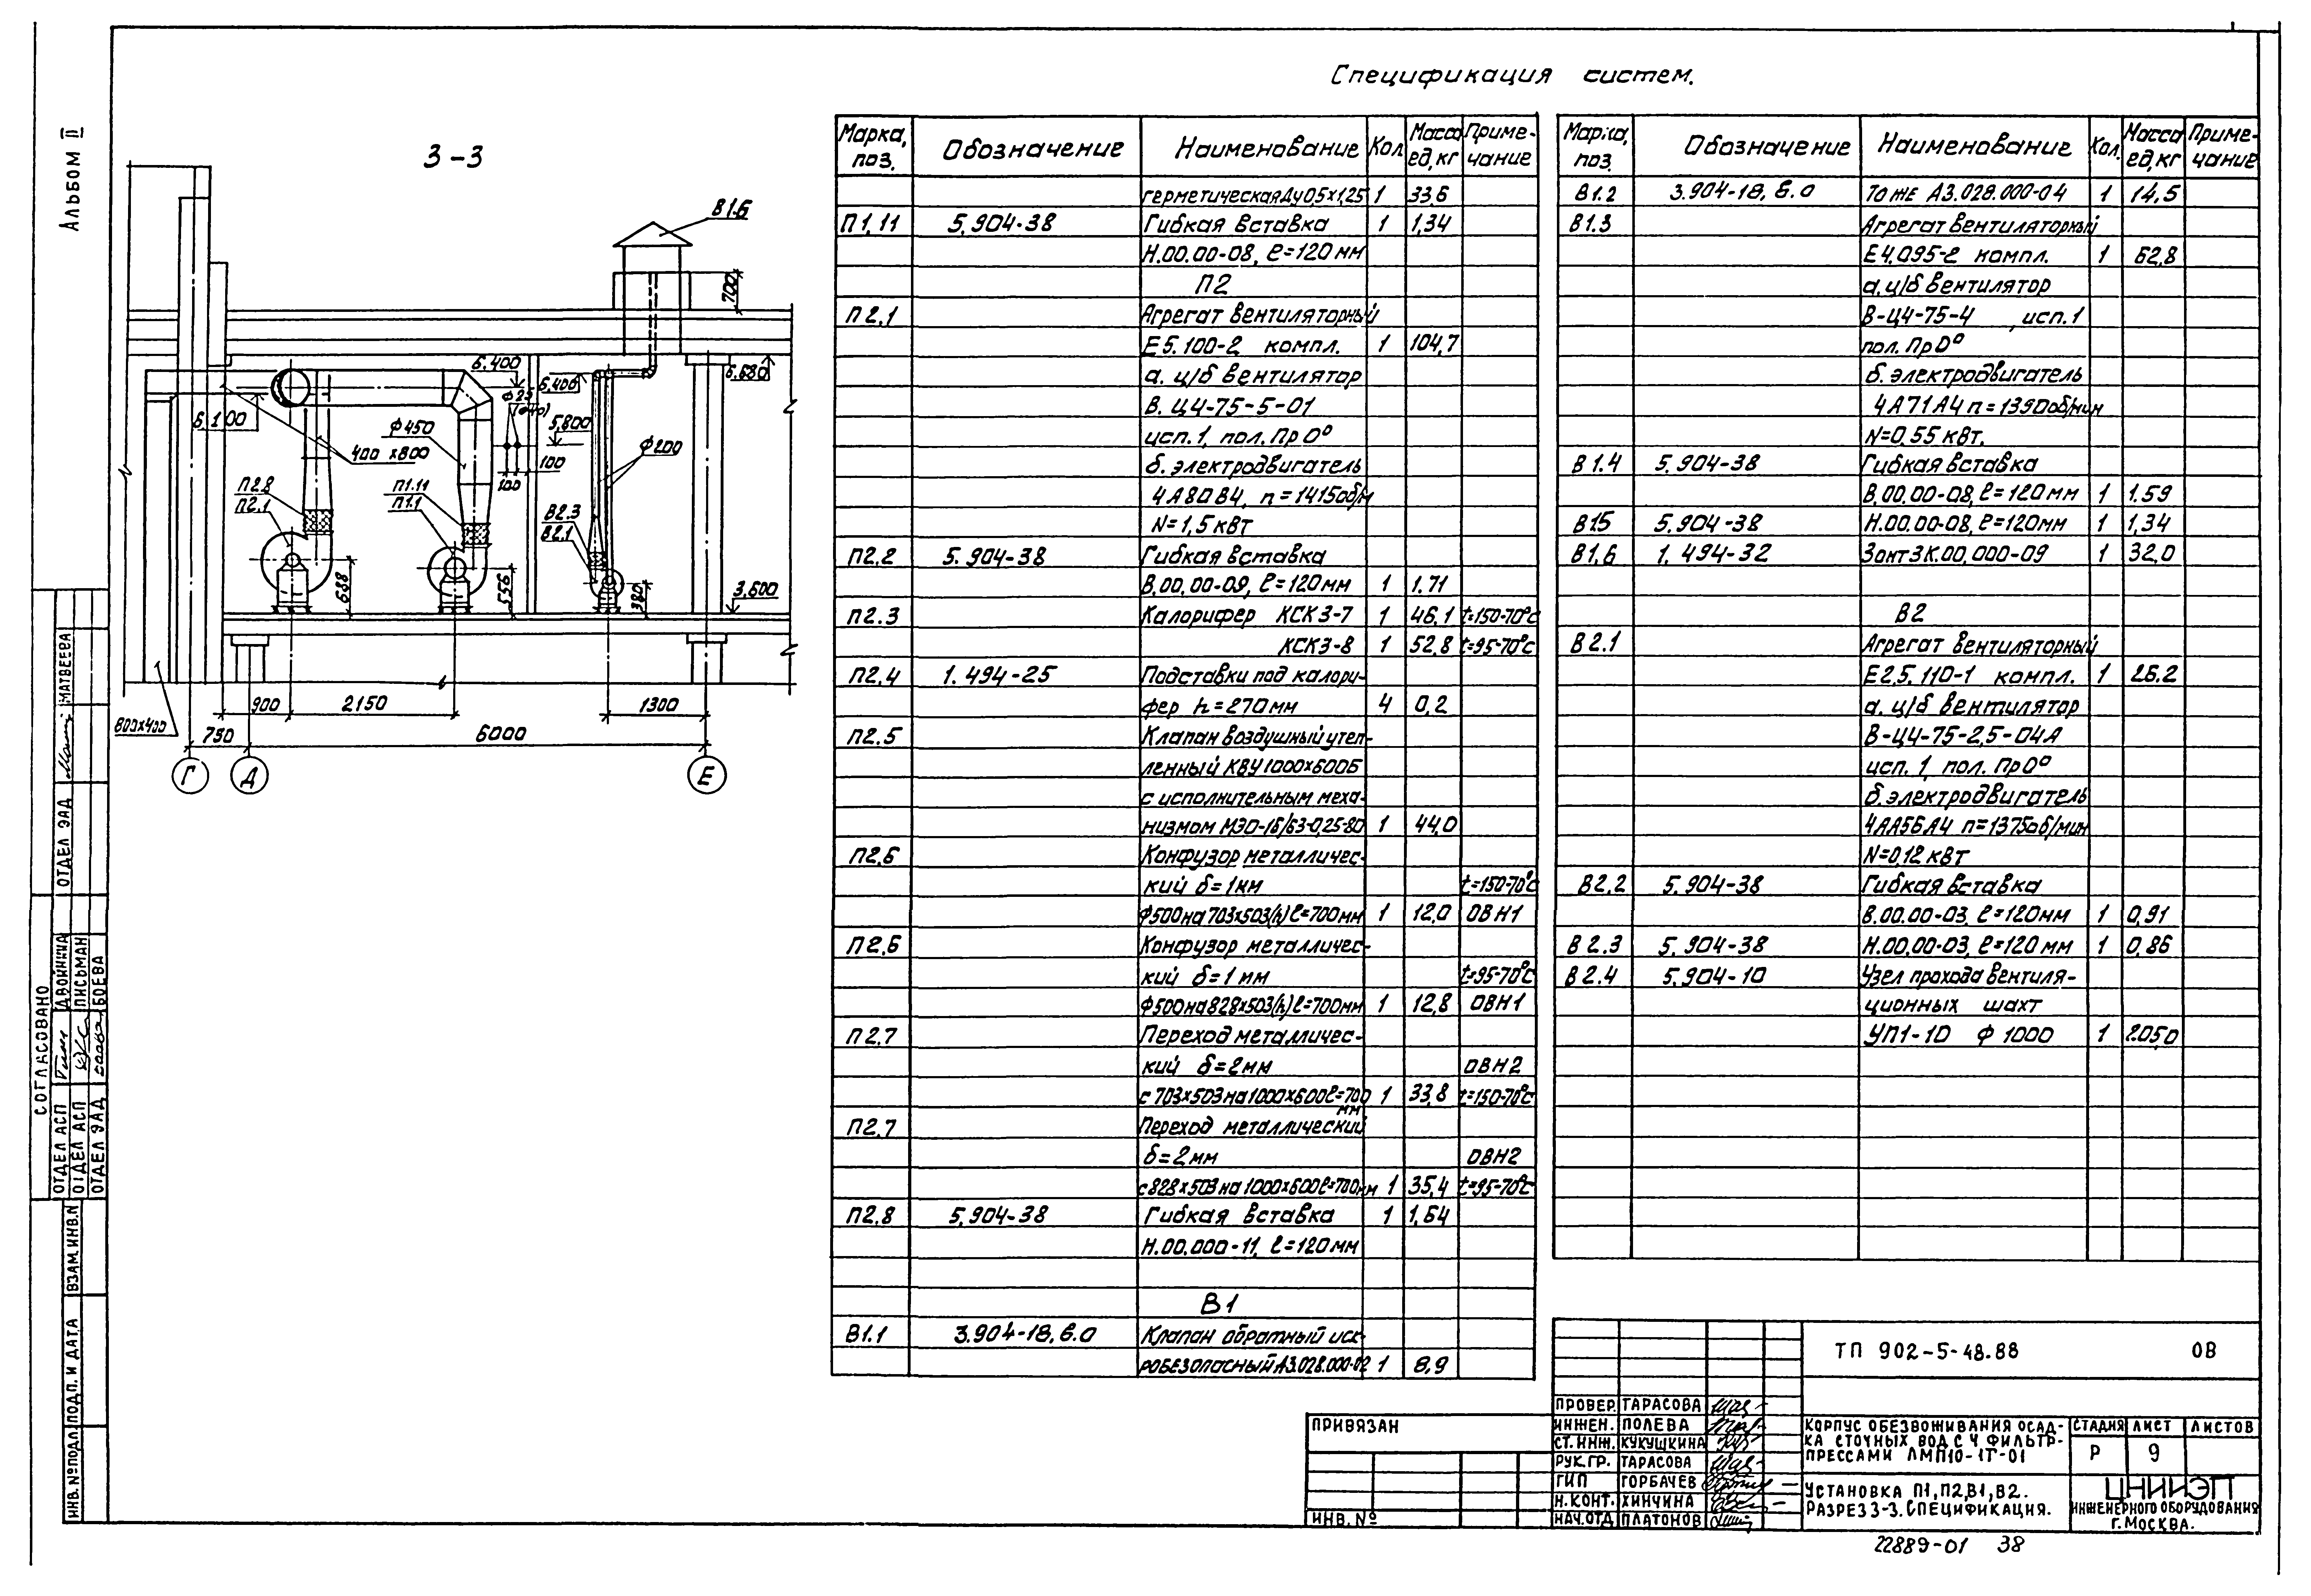 Альбом II
3-3
В1.6
700
6.400
6.400
6.680
6.100
ф450
400 х800
5.800
ф200
100
100
П2.8
П2.1
П1.11
П1.1
В2.3
В2.1
688
556
380
3.600
900
2150
1300
800х400
750
6000
Г
Д
Е
Спецификация систем.
Марка, поз. Обозначение Наименование Кол. Масса ед, кг Приме- чание
герметическая Ду0,5х1,25 1 33,6
П1.11 5.904-38 Гибкая вставка 1 1,34
Н.00.00-08, ℓ=120 мм
П2
П2.1 Агрегат вентиляторный
Е5.100-2 компл. 1 104,7
а. ц/б вентилятор
В. Ц4-75-5-01
исп.1, пол. Пр 0°
б. электродвигатель
4А80В4, n=1415об/м
N=1,5 кВт
П2.2 5.904-38 Гибкая вставка
В.00.00-09, ℓ=120 мм 1 1.71
П2.3 Калорифер КСК 3-7 1 46,1 t=150-70°С
КСК3-8 1 52,8 t=95-70°С
П2.4 1.494-25 Подставки под калори-
фер h=270 мм 4 0,2
П2.5 Клапан воздушный утеп-
ленный КВУ 1000х600Б
с исполнительным меха-
низмом МЭО-16/63-0,25-80 1 44,0
П2.6 Конфузор металличес-
кий δ=1мм t=150-70°С
ф500 на 703х503(h) ℓ=700 мм 1 12,0 ОВН1
П2.6 Конфузор металличес-
кий δ=1 мм t=95-70°С
ф500 на 828х503(h) ℓ=700мм 1 12,8 ОВН1
П2.7 Переход металличес-
кий δ=2мм ОВН2
с 703х503 на 1000х600 ℓ=700 мм 1 33,8 t=150-70°С
П2.7 Переход металлический
δ=2мм ОВН2
с 828х503 на 1000х600 ℓ=700мм 1 35,4 t=95-70°С
П2.8 5.904-38 Гибкая вставка 1 1,64
Н.00.000-11, ℓ=120 мм
В1
В1.1 3.904-18, в.0 Клапан обратный иск-
робезопасный А3.028.000-02 1 8,9
Марка, поз. Обозначение Наименование Кол. Масса ед, кг Приме- чание
В1.2 3.904-18, в.0 То же А3.028.000-04 1 14,5
В1.3 Агрегат вентиляторный
Е4.095-2 компл. 1 62,8
а. ц/б вентилятор
В-Ц4-75-4 , исп.1
пол. Пр0°
б. электродвигатель
4А71А4 n=1390об/мин
N=0,55 кВт.
В1.4 5.904-38 Гибкая вставка
В.00.00-08, ℓ=120 мм 1 1.59
В1.5 5.904-38 Н.00.00-08, ℓ=120мм 1 1,34
В1.6 1.494-32 Зонт ЗК.00.000-09 1 32,0
В2
В2.1 Агрегат вентиляторный
Е2,5.110-1 компл. 1 26.2
а. ц/б вентилятор
В-Ц4-75-2,5-04А
исп. 1, пол. Пр0°
б. электродвигатель
4АА56А4 n=1375об/мин
N=0,12 кВт
В2.2 5.904-38 Гибкая вставка
В.00.00-03, ℓ=120мм 1 0,91
В2.3 5.904-38 Н.00.00-03, ℓ=120 мм 1 0,86
В2.4 5.904-10 Узел прохода вентиля-
ционных шахт
УП1-10 ф 1000 1 205,0
СОГЛАСОВАНО
ОТДЕЛ ЭАД МАТВЕЕВА
ОТДЕЛ АСП ДВОЙНИНА
ОТДЕЛ АСП ПИСЬМАН
ОТДЕЛ ЭАД БОЕВА
ВЗАМ.ИНВ.N
ПОДП. И ДАТА
ИНВ.№ПОДЛ
ПРИВЯЗАН
ИНВ.№
ПРОВЕР. ТАРАСОВА
ИНЖЕН. ПОЛЕВА
СТ.ИНЖ. КУКУШКИНА
РУК.ГР. ТАРАСОВА
ГИП ГОРБАЧЕВ
Н.КОНТ. ХИНЧИНА
НАЧ.ОТД ПЛАТОНОВ
ТП 902-5-48.88 ОВ
КОРПУС ОБЕЗВОЖИВАНИЯ ОСАД-
КА СТОЧНЫХ ВОД С 4 ФИЛЬТР-
ПРЕССАМИ ЛМП10-1Г-01
СТАДИЯ ЛИСТ ЛИСТОВ
Р 9
УСТАНОВКА П1,П2,В1,В2.
РАЗРЕЗ 3-3. СПЕЦИФИКАЦИЯ.
ЦНИИЭП
ИНЖЕНЕРНОГО ОБОРУДОВАНИЯ
Г. МОСКВА.
22889-01 38